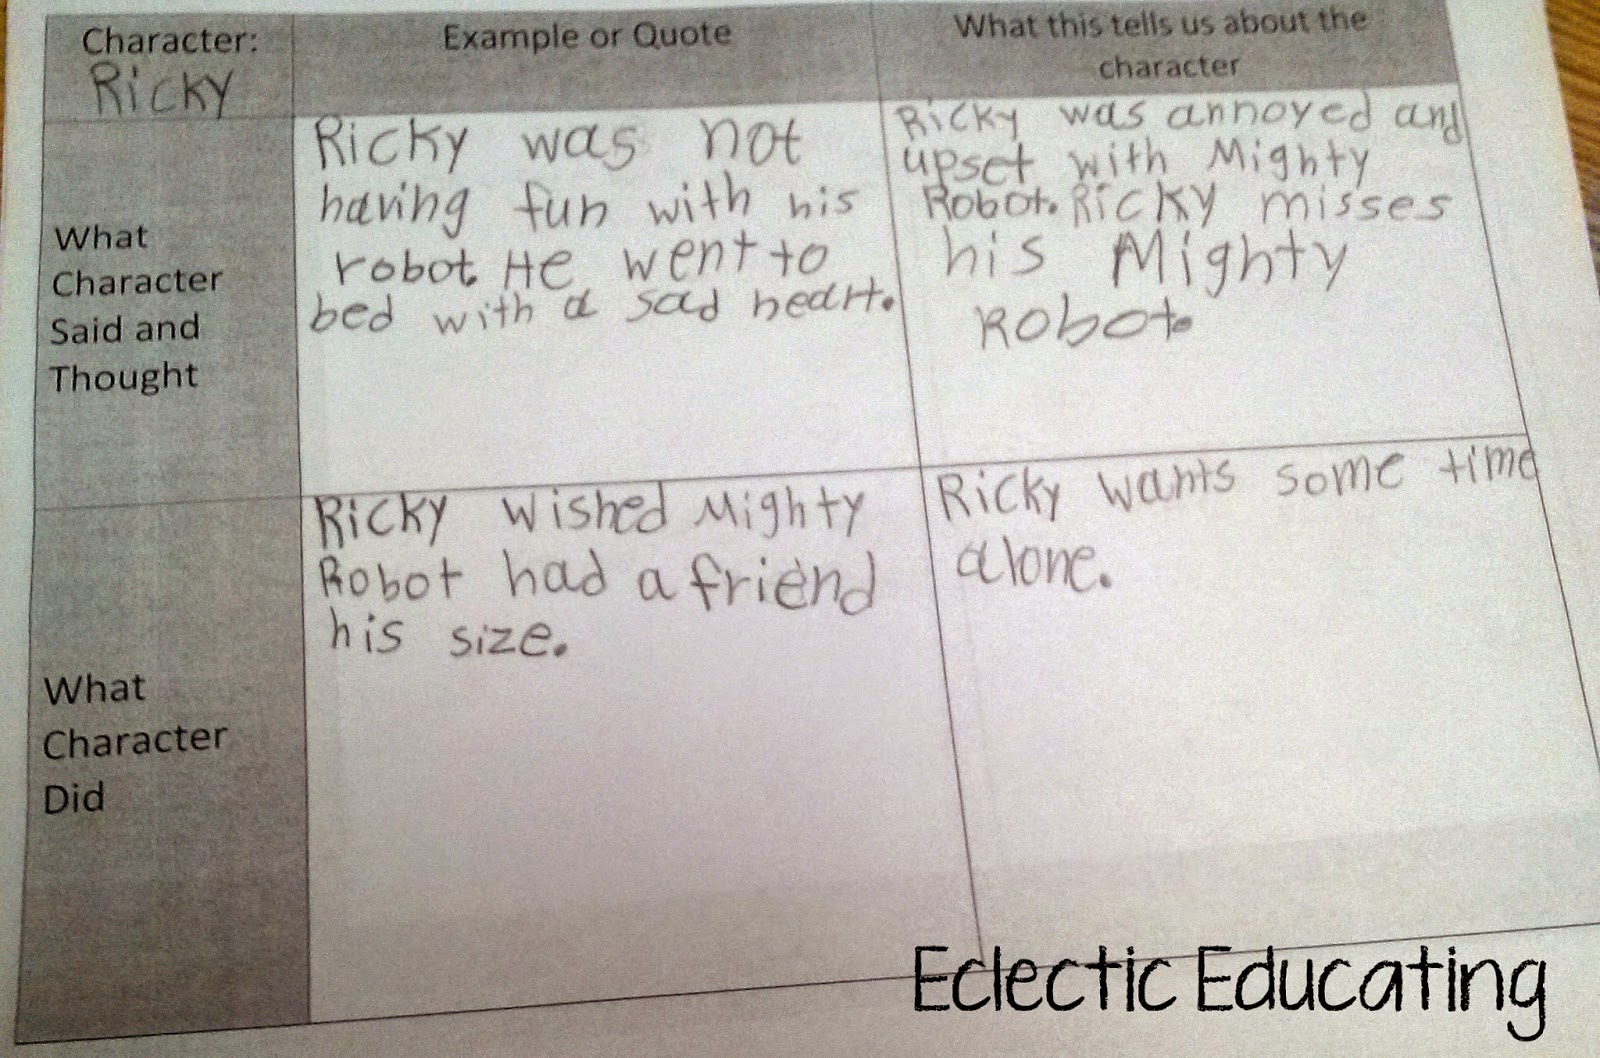 Character:
Ricky
Example or Quote
What this tells us about the
character
What
Character
Said and
Thought
Ricky was not
having fun with his
robot. He went to
bed with a sad heart.
Ricky was annoyed and
upset with Mighty
Robot. Ricky misses
his Mighty
Robot.
What
Character
Did
Ricky wished Mighty
Robot had a friend
his size.
Ricky wants some time
alone.
Eclectic Educating